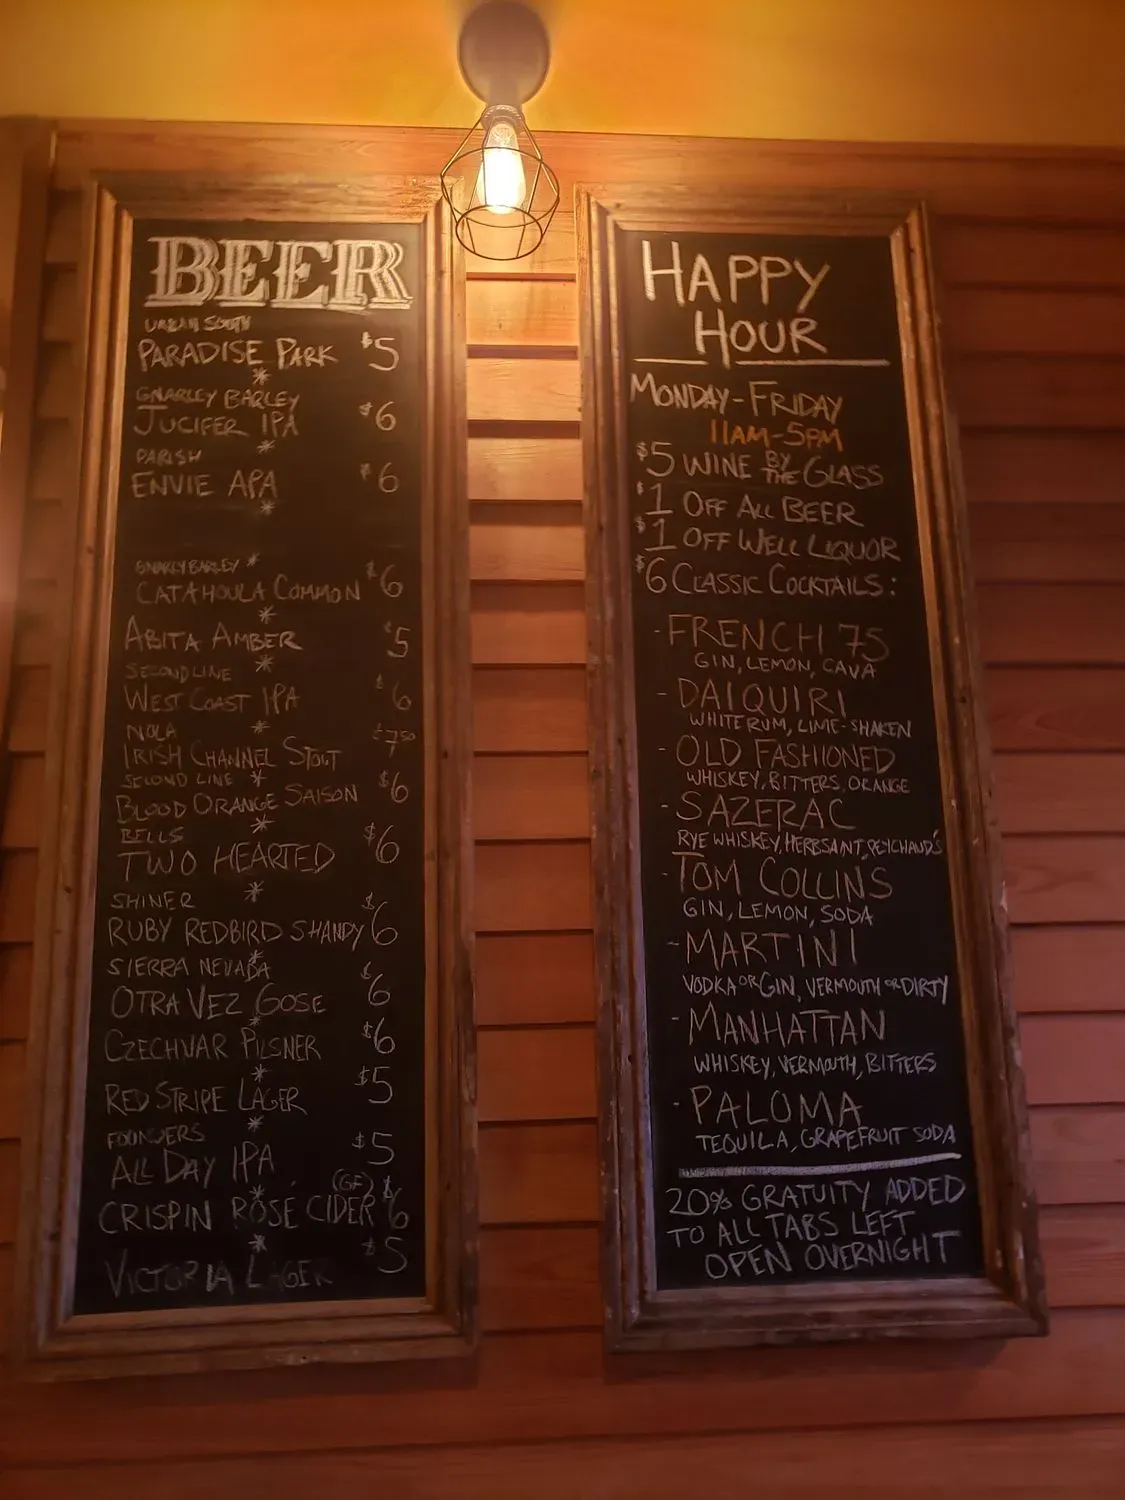 BEER
URBAN SOUTH
PARADISE PARK $5
*
GNARLEY BARLEY
JUCIFER IPA $6
*
PARISH
ENVIE APA $6
*
GNARLY BARLEY *
CATAHOULA COMMON $6
*
ABITA AMBER $5
SECOND LINE *
WEST COAST IPA $6
*
NOLA
IRISH CHANNEL STOUT $7.50
SECOND LINE *
BLOOD ORANGE SAISON $6
BELLS *
TWO HEARTED $6
SHINER *
RUBY REDBIRD SHANDY $6
SIERRA NEVADA *
OTRA VEZ GOSE $6
*
CZECHVAR PILSNER $6
*
RED STRIPE LAGER $5
FOUNDERS *
ALL DAY IPA $5
(GF)
CRISPIN ROSE CIDER $6
*
VICTORIA LAGER $5
HAPPY
HOUR
MONDAY-FRIDAY
11AM-5PM
$5 WINE BY THE GLASS
$1 OFF ALL BEER
$1 OFF WELL LIQUOR
$6 CLASSIC COCKTAILS:
- FRENCH 75
GIN, LEMON, CAVA
- DAIQUIRI
WHITE RUM, LIME-SHAKEN
- OLD FASHIONED
WHISKEY, BITTERS, ORANGE
- SAZERAC
RYE WHISKEY, HERBSAINT, PEYCHAUD'S
- TOM COLLINS
GIN, LEMON, SODA
- MARTINI
VODKA OR GIN, VERMOUTH OR DIRTY
- MANHATTAN
WHISKEY, VERMOUTH, BITTERS
- PALOMA
TEQUILA, GRAPEFRUIT SODA
20% GRATUITY ADDED
TO ALL TABS LEFT
OPEN OVERNIGHT